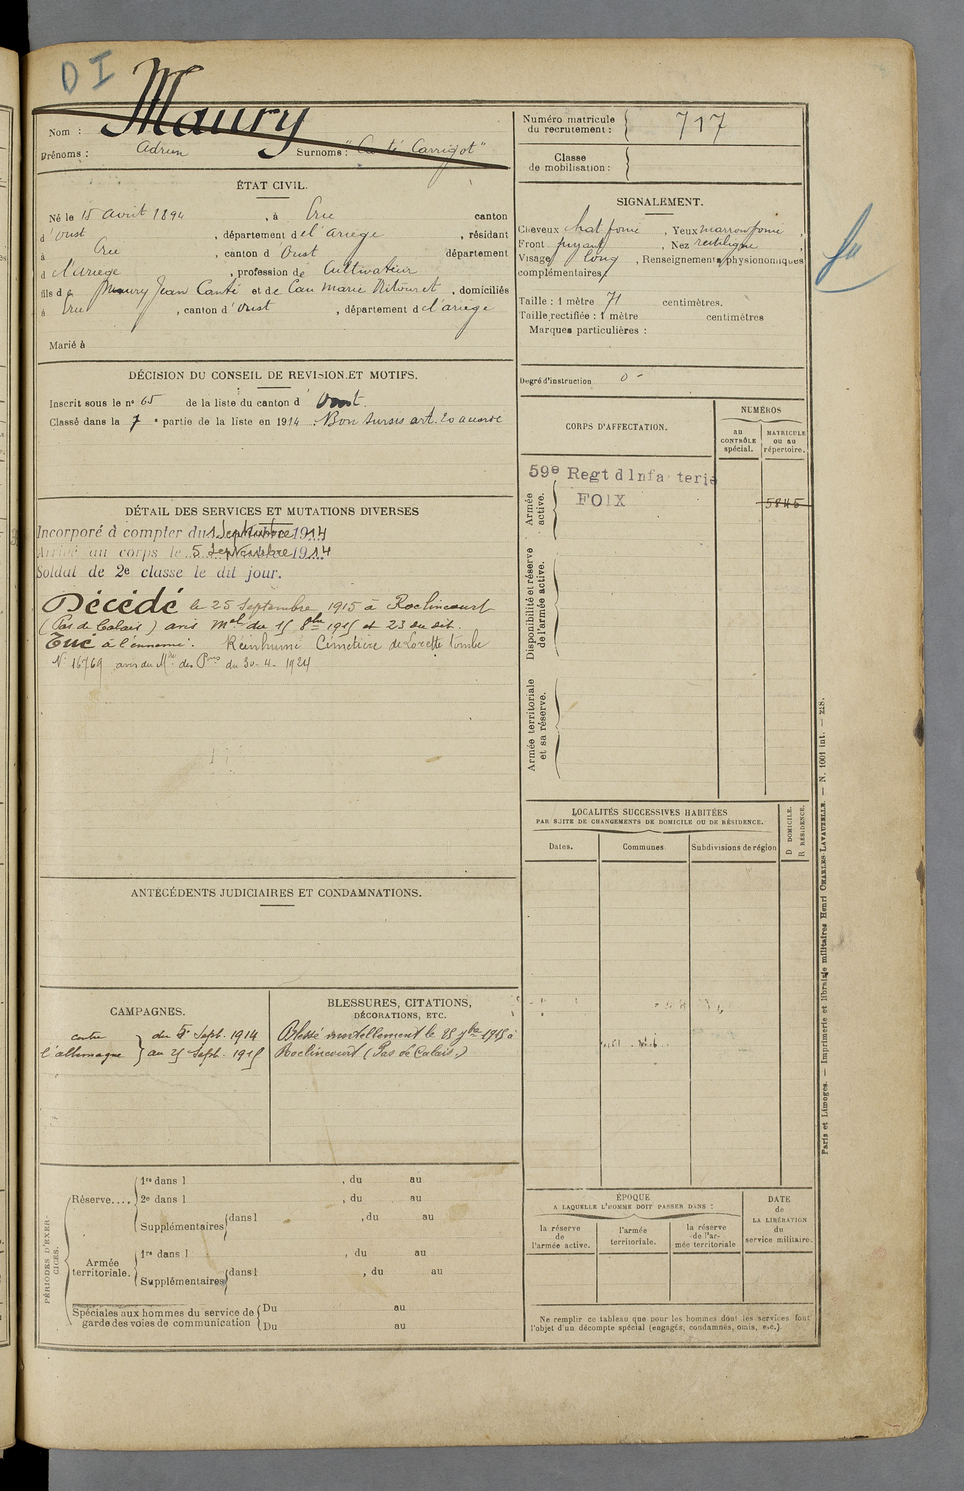 D I
Nom : Maury
Prénoms : Adrien Surnoms : " Carrigot"
Numéro matricule
du recrutement : 717
Classe
de mobilisation :
ÉTAT CIVIL.
Né le 15 avril 1894, à Ercé canton
d'Oust, département de l'Ariège, résidant
à Ercé, canton d'Oust département
d l'Ariège, profession de Cultivateur
fils de Maury Jean Canté et de Cau Marie, domiciliés
à Ercé, canton d'Oust, département d l'Ariège
Marié à
SIGNALEMENT.
Cheveux chat foncé, Yeux marron foncé,
Front fuyant, Nez rectiligne,
Visage long, Renseignements physionomiques
complémentaires,
Taille : 1 mètre 71 centimètres.
Taille rectifiée : 1 mètre centimètres
Marques particulières :
Degré d'instruction 0
DÉCISION DU CONSEIL DE REVISION ET MOTIFS.
Inscrit sous le n° 65 de la liste du canton d'Oust
Classé dans la 7e partie de la liste en 1914 : Bon sursis art. 20 accordé
CORPS D'AFFECTATION.
NUMÉROS
au
CONTRÔLE
spécial.
MATRICULE
ou au
répertoire.
Armée
active.
59e Regt d'Infanterie
FOIX
5845
Disponibilité et réserve
de l'armée active.
Armée territoriale
et sa réserve.
DÉTAIL DES SERVICES ET MUTATIONS DIVERSES
Incorporé à compter du 1 Septembre 1914
Arrivé au corps le 5 Septembre 1914
Soldat de 2e classe le dit jour.
Décédé le 25 Septembre 1915 à Roclincourt
(Pas de Calais) avis mel du 15 8bre 1915 et 23 du dit.
Tué à l'ennemi. Réinhumé Cimetière de Lorette tombe
N° 16769 avis du Mre des Pons du 30-4-1924
LOCALITÉS SUCCESSIVES HABITÉES
PAR SUITE DE CHANGEMENTS DE DOMICILE OU DE RÉSIDENCE.
Dates. Communes Subdivisions de région
D DOMICILE.
R RÉSIDENCE.
ANTÉCÉDENTS JUDICIAIRES ET CONDAMNATIONS.
CAMPAGNES.
contre
l'allemagne
du 5 Sept. 1914
au 25 Sept. 1915
BLESSURES, CITATIONS,
DÉCORATIONS, ETC.
Blessé mortellement le 25 7bre 1915 à
Roclincourt (Pas de Calais.)
PÉRIODES D'EXER-
CICES.
Réserve....
1re dans l , du au
2e dans l , du au
Supplémentaires dans l , du au
Armée
territoriale.
1re dans l , du au
Supplémentaires dans l , du au
Spéciales aux hommes du service de
garde des voies de communication
Du au
Du au
ÉPOQUE
A LAQUELLE L'HOMME DOIT PASSER DANS :
la réserve
de
l'armée active.
l'armée
territoriale.
la réserve
de l'ar-
mée territoriale
DATE
de
LA LIBÉRATION
du
service militaire.
Ne remplir ce tableau que pour les hommes dont les services font
l'objet d'un décompte spécial (engagés, condamnés, omis, etc.).
Paris et Limoges. — Imprimerie et librairie militaires Henri CHARLES-LAVAUZELLE. — N. 1001 int. — 228.